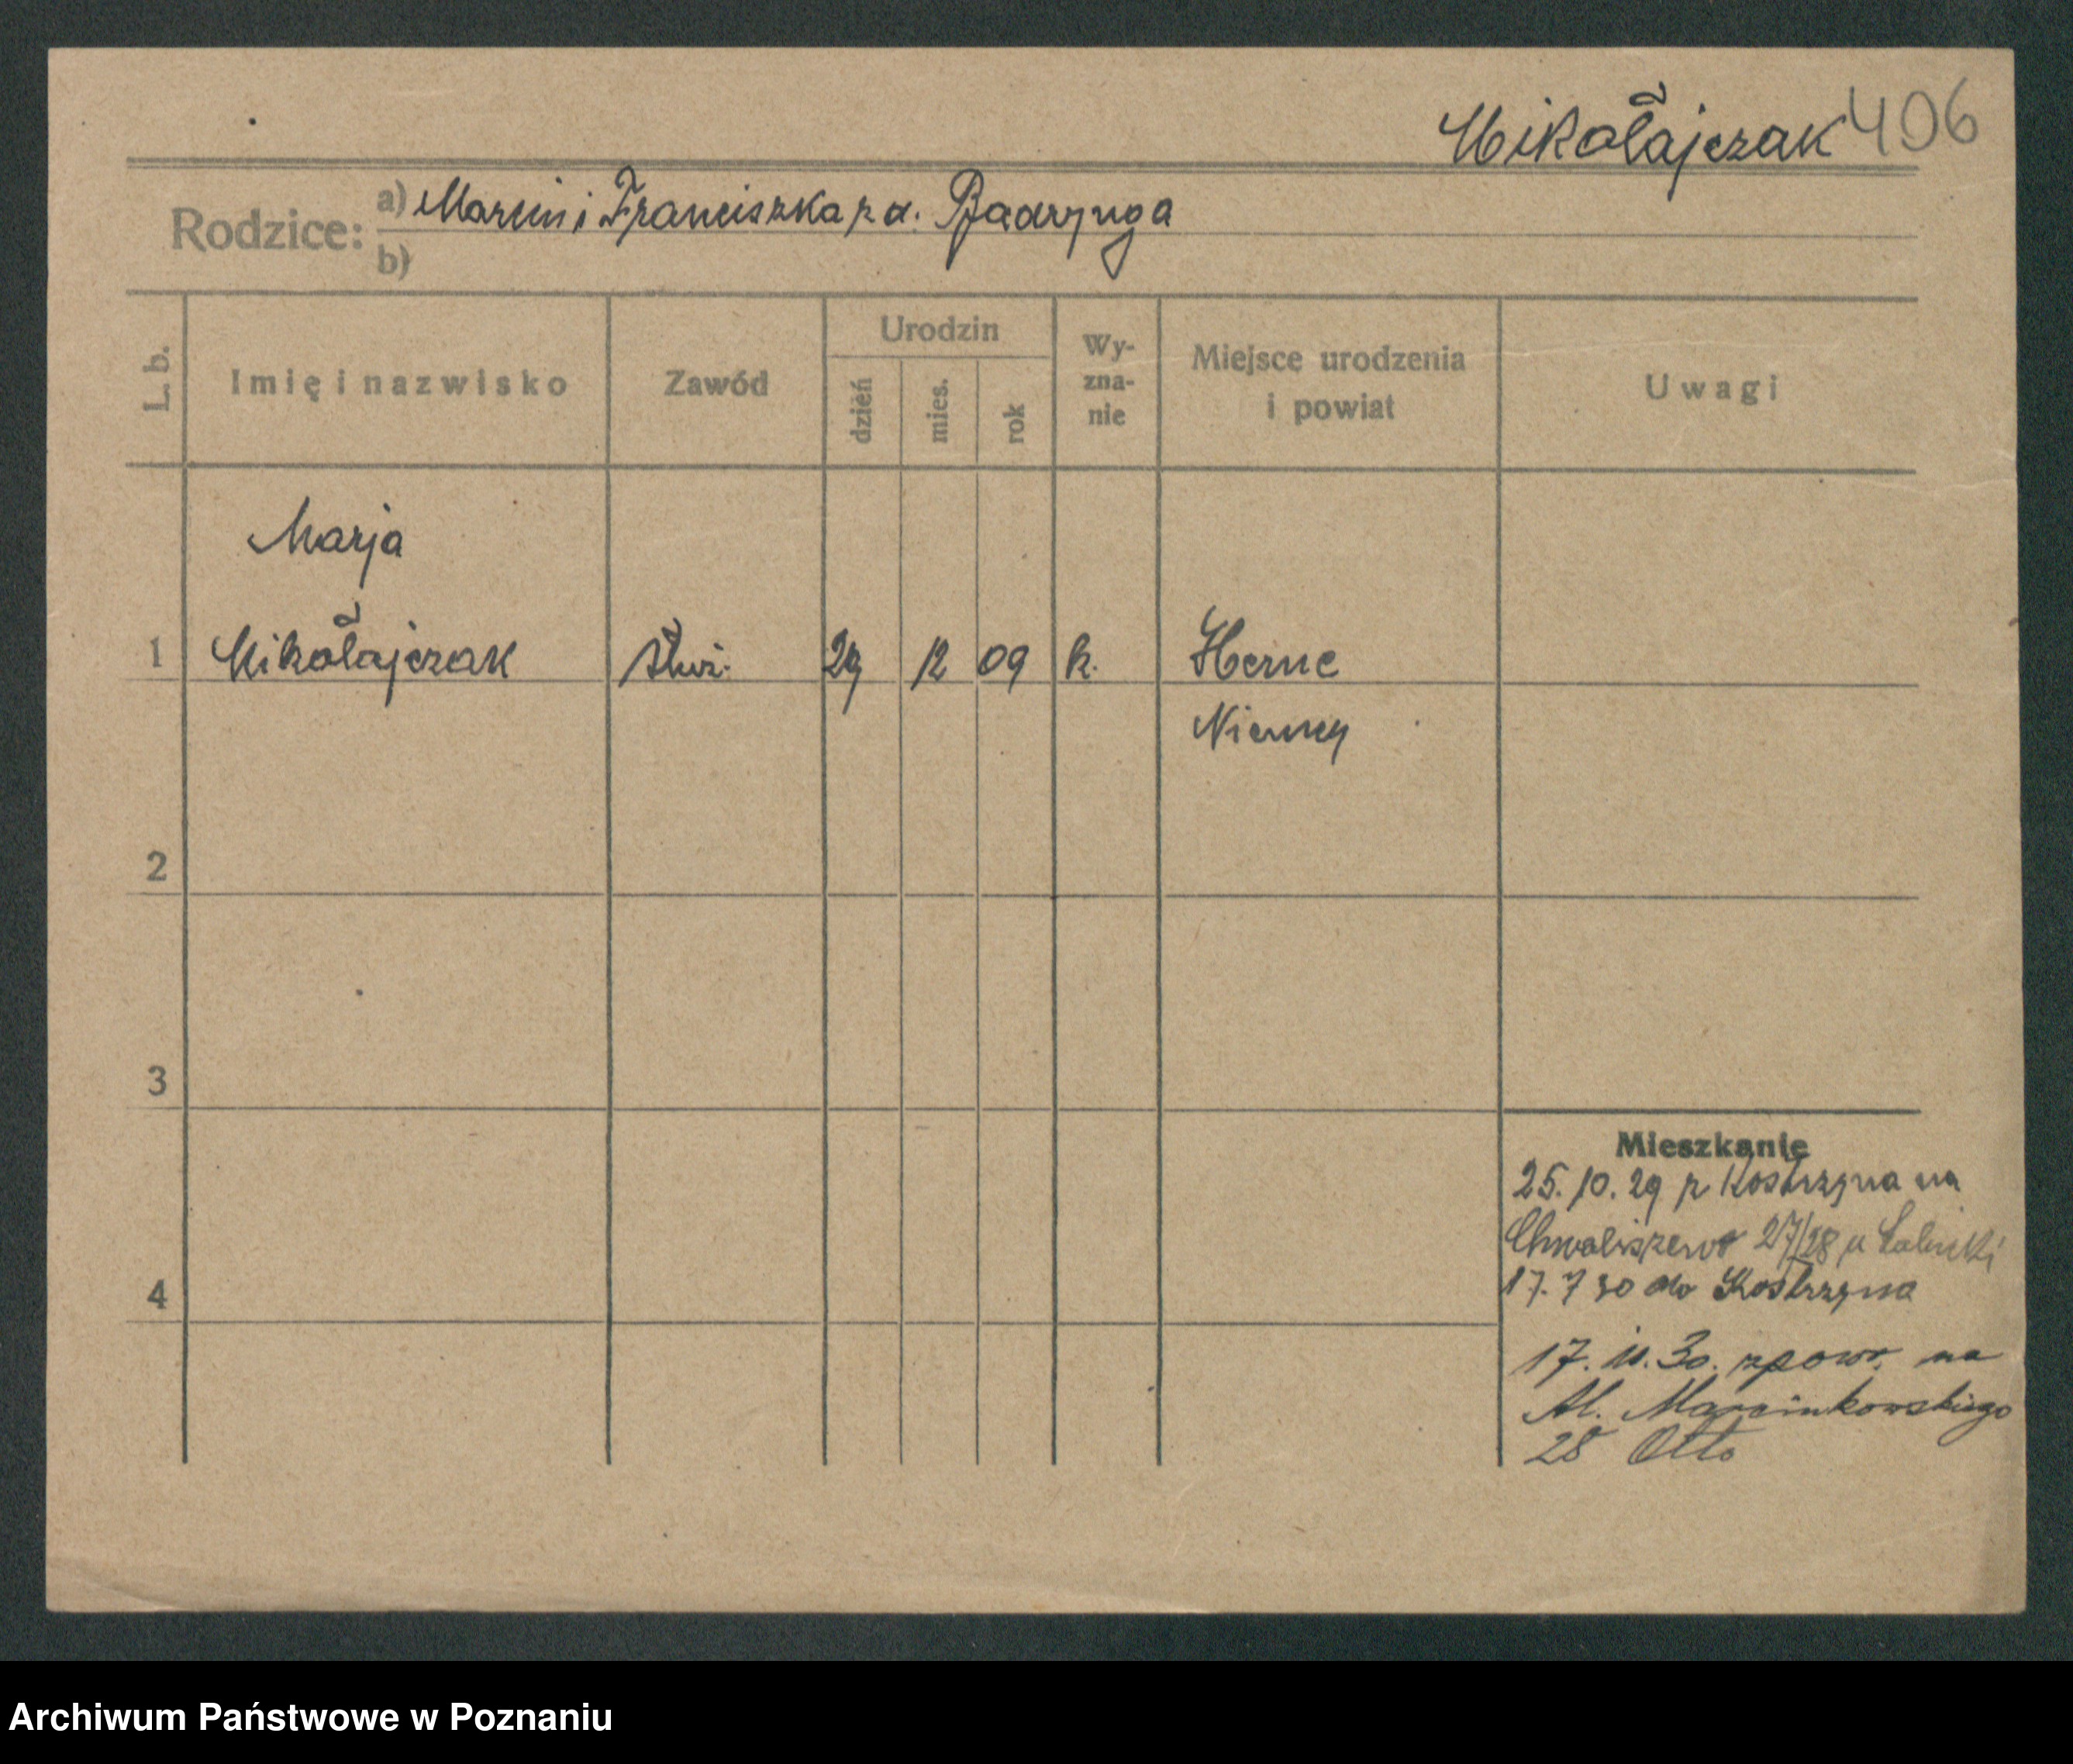 Mikołajczak 406
Rodzice: a) Marcin i Franciszka z d.
b)
L. b. Imię i nazwisko Zawód Urodzin dzień mies. rok Wyznanie Miejsce urodzenia i powiat Uwagi
Marja
1 Mikołajczak służ. 29 12 09 k. Herne
Niemcy
2
3
Mieszkanie
25. 10. 29 z Kostrzyna na
Chwaliszewo 27/28 u
4 17. 7 30 do Kostrzyna
17. 10. 30. zpowr. na
Al. Marcinkowskiego
28 Otto
Archiwum Państwowe w Poznaniu